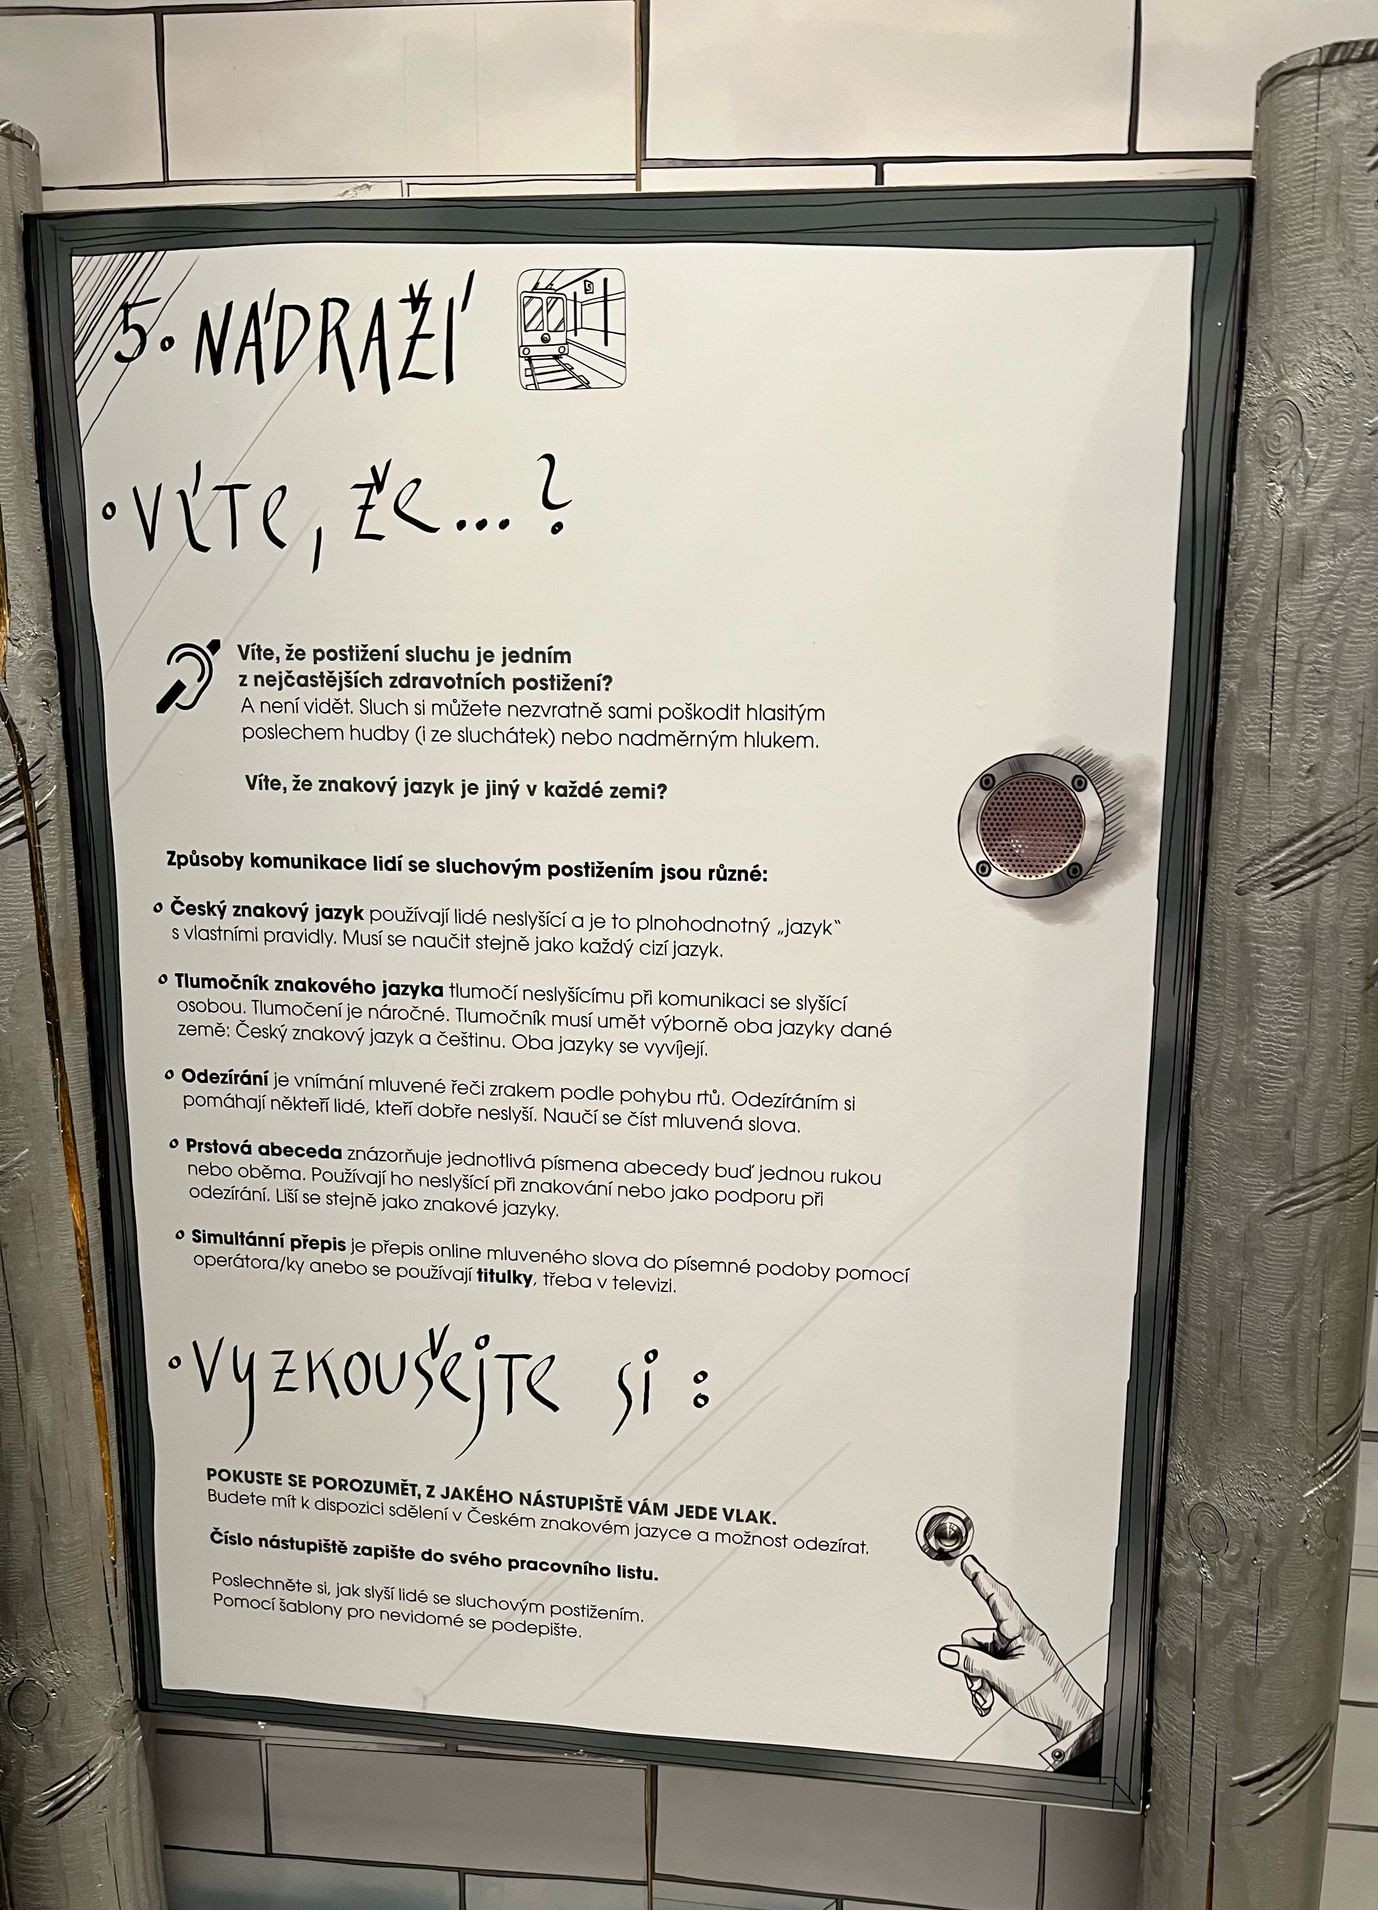 5. NÁDRAŽÍ
5
VÍTE, ŽE...?
Víte, že postižení sluchu je jedním
z nejčastějších zdravotních postižení?
A není vidět. Sluch si můžete nezvratně sami poškodit hlasitým
poslechem hudby (i ze sluchátek) nebo nadměrným hlukem.
Víte, že znakový jazyk je jiný v každé zemi?
Způsoby komunikace lidí se sluchovým postižením jsou různé:
Český znakový jazyk používají lidé neslyšící a je to plnohodnotný „jazyk“
s vlastními pravidly. Musí se naučit stejně jako každý cizí jazyk.
Tlumočník znakového jazyka tlumočí neslyšícímu při komunikaci se slyšící
osobou. Tlumočení je náročné. Tlumočník musí umět výborně oba jazyky dané
země: Český znakový jazyk a češtinu. Oba jazyky se vyvíjejí.
Odezírání je vnímání mluvené řeči zrakem podle pohybu rtů. Odezíráním si
pomáhají někteří lidé, kteří dobře neslyší. Naučí se číst mluvená slova.
Prstová abeceda znázorňuje jednotlivá písmena abecedy buď jednou rukou
nebo oběma. Používají ho neslyšící při znakování nebo jako podporu při
odezírání. Liší se stejně jako znakové jazyky.
Simultánní přepis je přepis online mluveného slova do písemné podoby pomocí
operátora/ky anebo se používají titulky, třeba v televizi.
VYZKOUŠEJTE SI:
POKUSTE SE POROZUMĚT, Z JAKÉHO NÁSTUPIŠTĚ VÁM JEDE VLAK.
Budete mít k dispozici sdělení v Českém znakovém jazyce a možnost odezírat.
Číslo nástupiště zapište do svého pracovního listu.
Poslechněte si, jak slyší lidé se sluchovým postižením.
Pomocí šablony pro nevidomé se podepište.